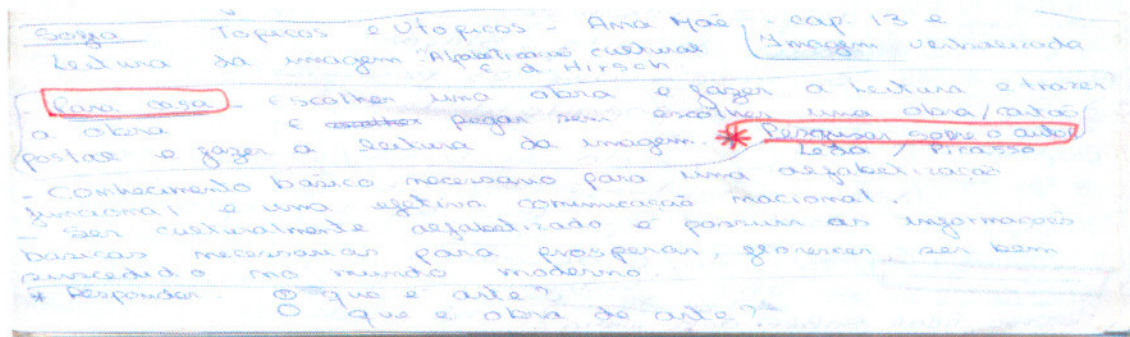 Tópicos e Utópicos - Ana Mae, cap. 13 e
Leitura da imagem "Alfabetização cultural Imagem verbalizada
E. d. Hirsch
- Para casa - Escolher uma obra e fazer a leitura e trazer
a obra E escolher pegar sem escolher uma obra/cartão
postal e fazer a leitura da imagem. * Pesquisar sobre o autor
Leda / Picasso
- Conhecimento básico necessário para uma alfabetização
funcional e uma efetiva comunicação nacional.
- Ser culturalmente alfabetizado é possuir as informações
básicas necessárias para prosperar, florescer, ser bem
sucedido no mundo moderno.
* Responder. O que é arte?
O que é obra de arte?